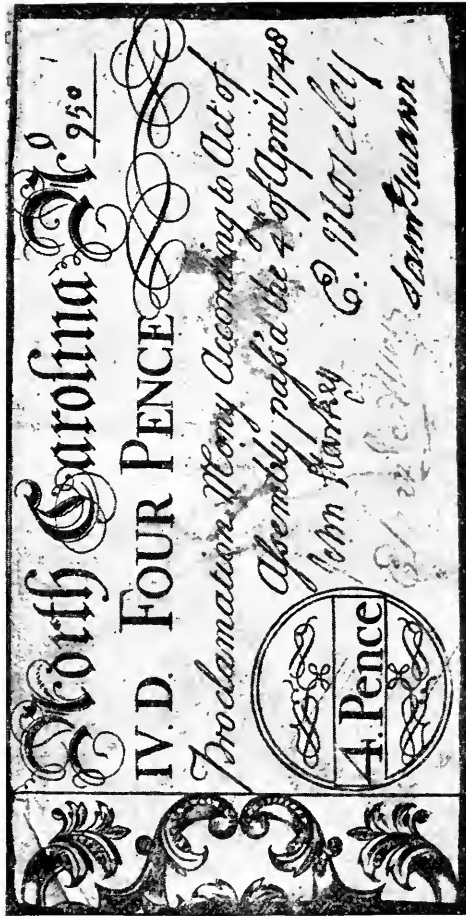 North Carolina No 950
IV. D. FOUR PENCE
Proclamation Mony According to Act of
Assembly pass'd the 4. of April 1748
John Starkey
E. Moseley
Sam Swann
4. Pence